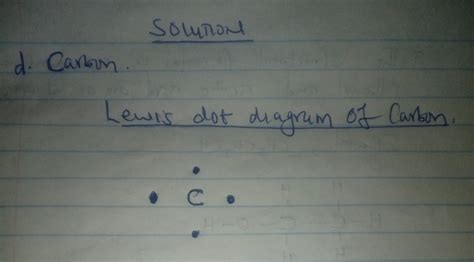 Solution
d. Carbon.
Lewis dot diagram of Carbon.
C